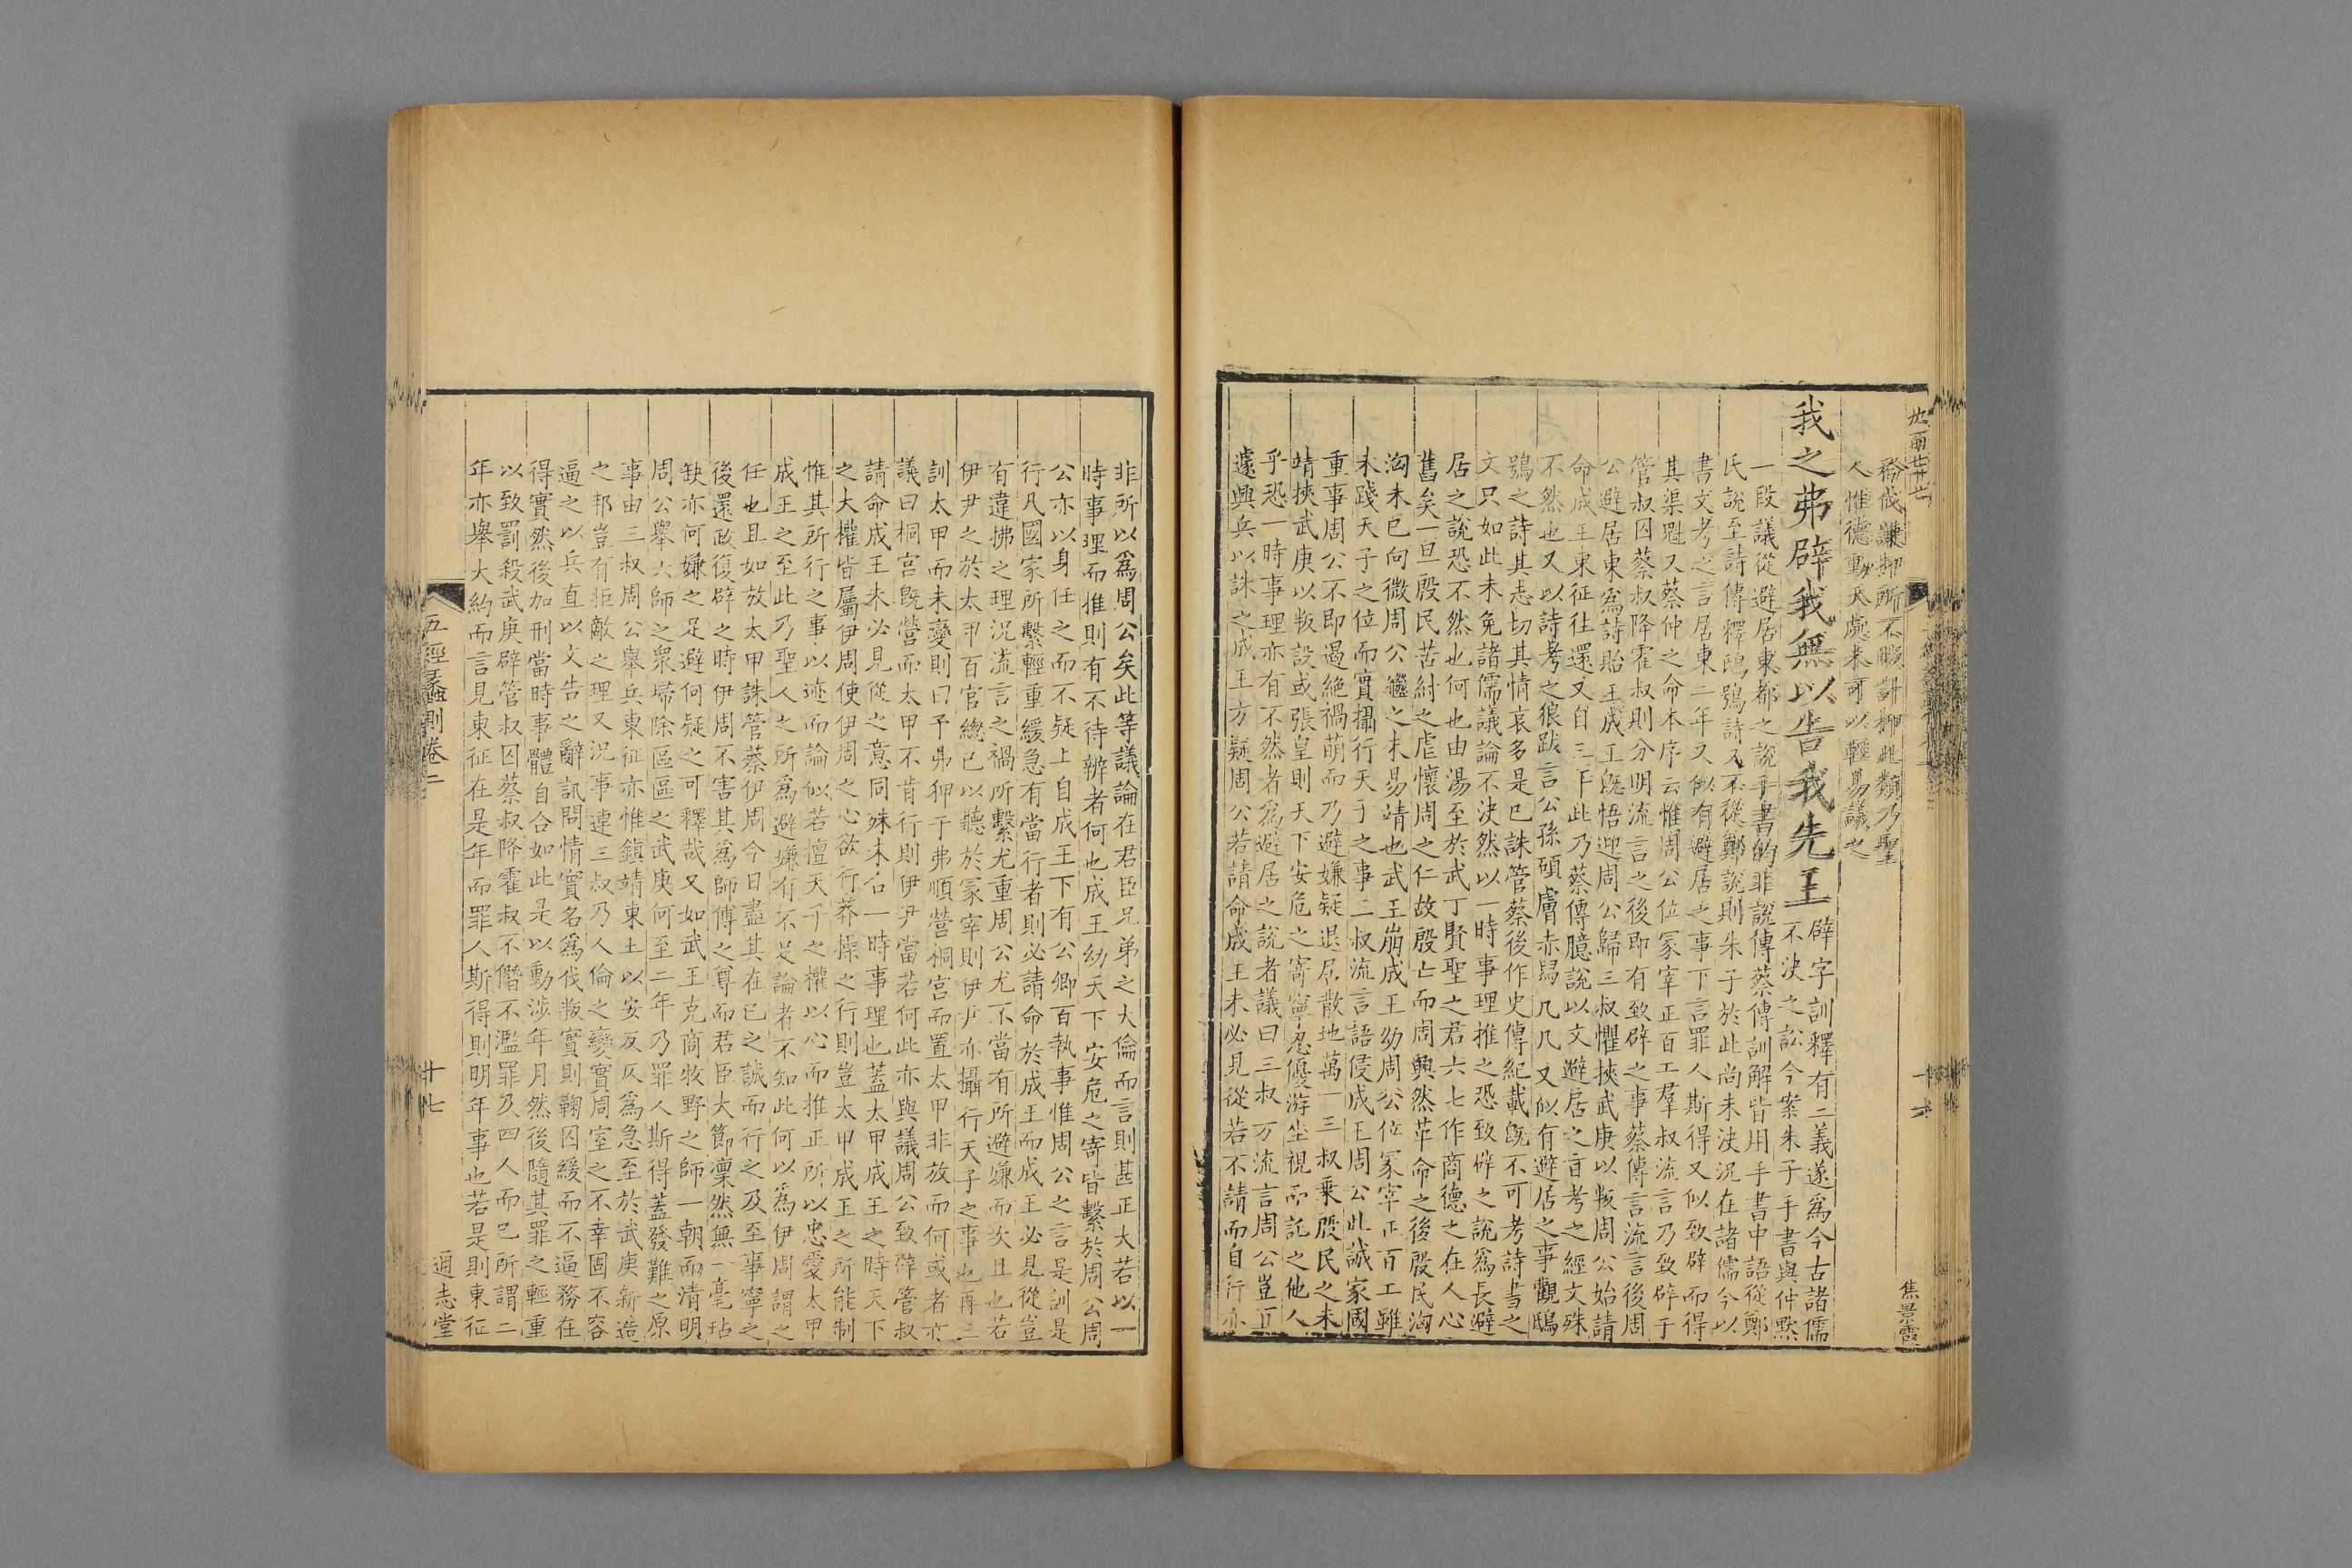 矜伐謙抑所不暇計櫛此類乃聖
人惟德動天處未可以輕易議之
我之弗辟我無以告我先王
辟字訓釋有二義遂為今古諸儒
不決之訟今案朱子手書與仲默
一段議從避居東都之說手書的非說傳蔡傳訓解皆用手書中語從鄭
氏說至詩傳釋鴟鴞詩又不從鄭說則朱子於此尚未決況在諸儒今以
書文考之言居東二年又似有避居之事下言罪人斯得又似致辟而得
其渠魁又蔡仲之命本序云惟周公位冡宰正百工羣叔流言乃致辟于
管叔囚蔡叔降霍叔則分明流言之後即有致辟之事蔡傳言流言後周
公避居東為詩貽王成王既悟迎周公歸三叔懼挾武庚以叛周公始請
命成王東征往還又自三年此乃蔡傳臆說以文避居之言考之經文殊
不然也又以詩考之狼跋言公孫碩膚赤舄几几又似有避居之事觀鴟
鴞之詩其志切其情哀多是已誅管蔡後作史傳紀載既不可考詩書之
文只如此未免諸儒議論不決然以一時事理推之恐致辟之說為長避
居之說恐不然也何也由湯至於武丁賢聖之君六七作商德之在人心
舊矣一旦殷民苦紂之虐懷周之仁故殷亡而周興然革命之後殷民洶
洶未已向微周公繼之未易靖也武王崩成王幼周公位冡宰正百工雖
未踐天子之位而實攝行天子之事二叔流言語侵成王周公此誠家國
重事周公不即遏絶禍萌而乃避嫌疑退居散地萬一三叔乗殷民之未
靖挾武庚以叛設或張皇則天下安危之寄寧忍優游坐視而託之他人
乎恐一時事理亦有不然者為避居之說者議曰三叔方流言周公豈宜
遽興兵以誅之成王方疑周公若請命成王未必見從若不請而自行亦
焦景霞
非所以為周公矣此等議論在君臣兄弟之大倫而言則甚正大若以一
時事理而推則有不待辨者何也成王幼天下安危之寄皆繫於周公周
公亦以身任之而不疑上自成王下有公卿百執事惟周公之言是訓是
行凡國家所繫輕重緩急有當行者則必請命於成王而成王必見從豈
有違拂之理況流言之禍所繫尤重周公尤不當有所避嫌而次且也若
伊尹之於太甲百官總已以聽於冡宰則伊尹亦攝行天子之事也再三
訓太甲而未變則曰予弗狎于弗順營桐宮而置太甲非放而何或者亦
議曰桐宮既營而太甲不肯行則伊尹當若何此亦與議周公致辟管叔
請命成王未必見從之意同殊未合一時事理也蓋太甲成王之時天下
之大權皆屬伊周使伊周之心欲行莽操之行則豈太甲成王之所能制
惟其所行之事以迹而論似若擅天子之權以心而推正所以忠愛太甲
成王之至此乃聖人之所為避嫌有不足論者不知此何以為伊周謂之
任也且如放太甲誅管蔡伊周今日盡其在已之誠而行之及至事寧之
後還政復辟之時伊周不害其為師傅之尊而君臣大節凜然無一毫玷
缺亦何嫌之足避何疑之可釋哉又如武王克商牧野之師一朝而清明
周公舉六師之衆埽除區區之武庚何至二年乃罪人斯得蓋發難之原
事由三叔周公舉兵東征亦惟鎮靖東土以安反仄為急至於武庚新造
之邦豈有拒敵之理又況事連三叔乃人倫之變實周室之不幸固不容
逼之以兵直以文告之辭訊問情實名為伐叛實則鞠囚緩而不逼務在
得實然後加刑當時事體自合如此是以動涉年月然後隨其罪之輕重
以致罰殺武庚辟管叔囚蔡叔降霍叔不僭不濫罪及四人而已所謂二
年亦舉大約而言見東征在是年而罪人斯得則明年事也若是則東征
五經蠡測卷二
十七
通志堂